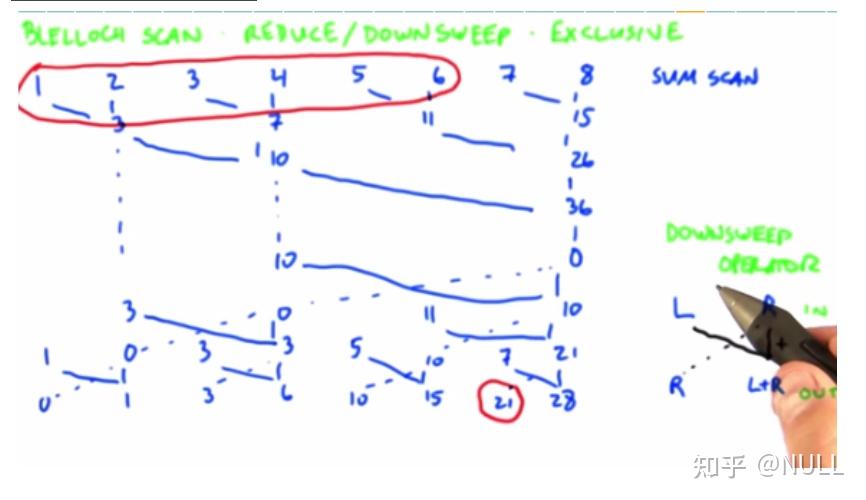 BLELLOCH SCAN · REDUCE/DOWNSWEEP · EXCLUSIVE
1 2 3 4 5 6 7 8 SUM SCAN
3 7 11 15
10 26
36
DOWNSWEEP
OPERATOR
10 0
3 0 11 10
L R IN
1 0 3 3 5 10 7 21
+
0 1 3 6 10 15 21 28
R L+R OUT
知乎 @NULL